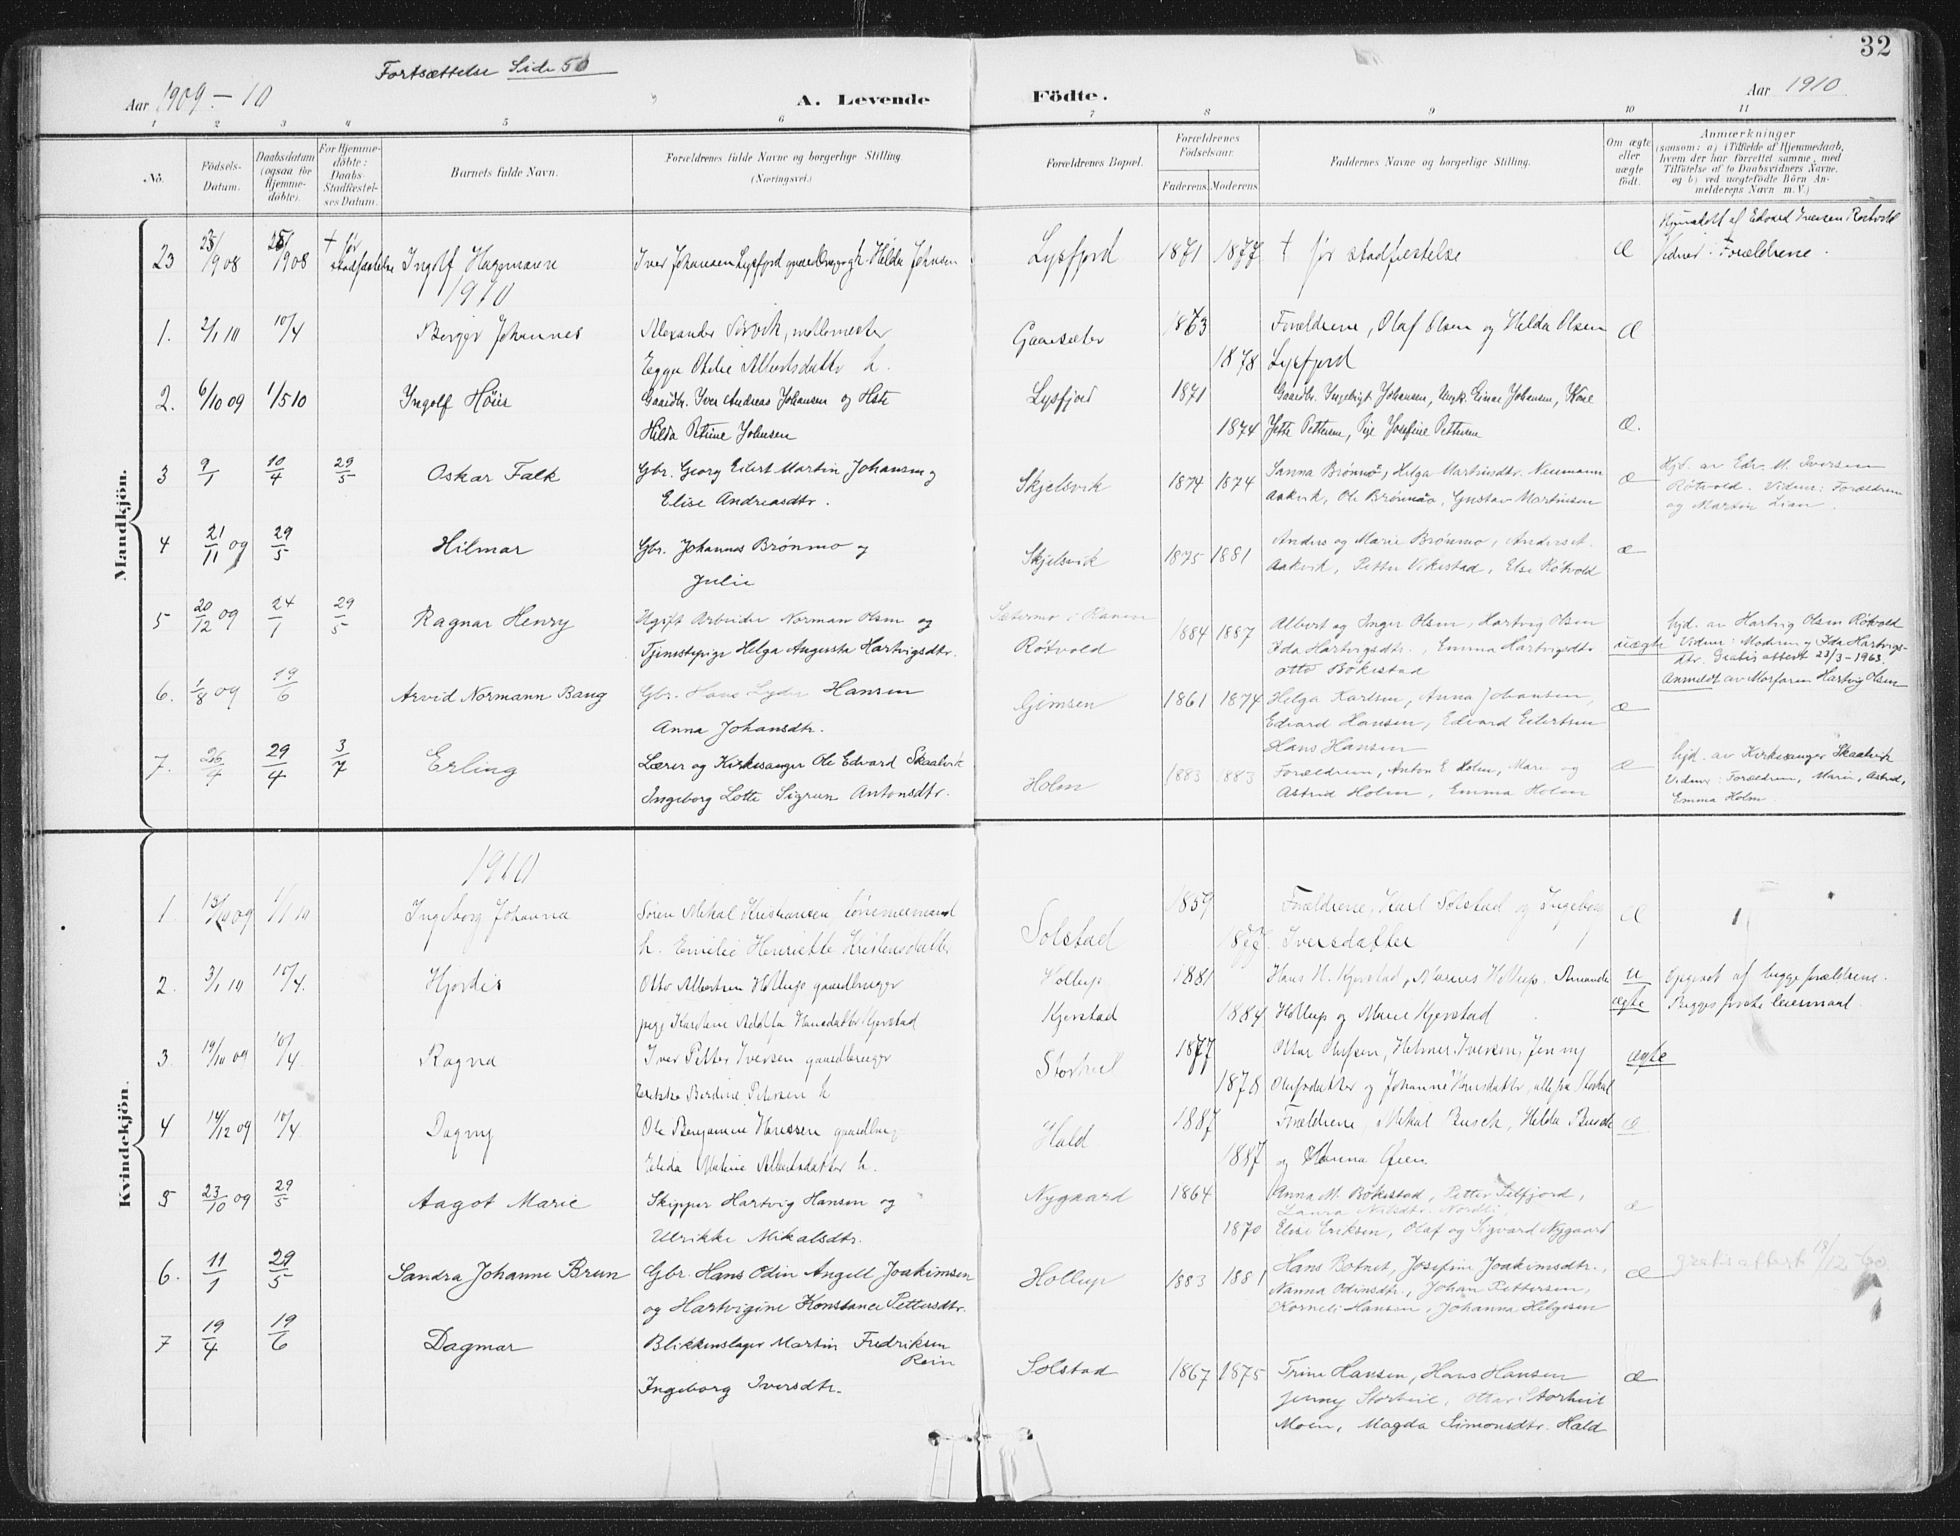 32
Fortsættelse Side 50
Aar 1909-10
A. Levende
Födte.
Aar 1910
1 2 3 4 5 6 7 8 9 10 11
No.
Födsels-Datum.
Daabsdatum (ogsaa for Hjemmedöbte).
For Hjemmedöbte: Daabs-Stadfæstelses Datum.
Barnets fulde Navn.
Forældrenes fulde Navne og borgerlige Stilling
(Næringsvei.)
Forældrenes Bopæl.
Forældrenes Födselsaar.
Faderens. Moderens.
Faddernes Navne og borgerlige Stilling.
Om ægte eller uægte født.
Anmærkninger
(saasom: a) i Tilfælde af Hjemmedaab, hvem der har forrettet samme, med Tilföielse af to Daabsvidners Navne, og b) ved uægtefödte Börn Anmelderens Navn m. V.)
Mandkjön.
Hjemmedöbt af Edvard Iversen Røtvold
23 /9 08 /9 08 † før stadfæstelse Ingolf Hagemann Iver Johansen Lysfjord Hilda Johnsen Lysfjord 1871 1877 † før stadfæstelse Æ Vidner: Forældrene.
1910
1. 2/1 10 10/4 Birger Johannes Alexander Sørvik, Gaasæter 1863 Forældrene, Olaf Olsen og Hilda Olsen Æ
Albertsdatter h. 1878 Lysfjord
2. 6/10 09 1/5 10 Ingolf Höier Gaardbr. Iver Andreas Johansen og Hste Lysfjord 1871 Gaardbr. Ingebrigt Johansen, Ungk. Einar Johansen, Kone
Hilda Petrine Johnsen 1874 Jette Pettersen, Pige Josefine Pettersen Æ.
3 9/1 10/4 29/5 Oskar Falk Gbr. Georg Eilert Martin Johansen og Skjelsvik 1874 1874 Sanna Brønmo, Helga Martinsdtr. Neumann Æ Hjd. av Edv. M. Iversen
Elise Andreasdtr. Aakvik, Ole Brønmo, Gustav Martinsen Røtvold. Vidner: Forældrene
og Martin Lian.
4 21/11 09 29/5 Hilmar Gbr. Johannes Brønmo og Skjelsvik 1875 1881 Anders og Marie Brønmo, Anderset. Æ
Julie Aakvik, Petter Vikestad, Else Røtvold
5 20/12 09 24/1 29/5 Ragnar Henry Ugift Arbeider Norman Olsen og Sætermo i Ranen 1884 1887 Albert og Inger Olsen, Hartvig Olsen uægte hjd. av Hartvig Olsen Røtvold
Tjenestepige Helga Augusta Hartvigsdtr. Røtvold Ida Hartvigsdtr., Emma Hartvigsdtr. Vidner: Moderen og Ida Hartvigs-
Otto Bøkestad dtr. Gratis attest 23/3-1963.
6. 1/8 09 19/6 Arvid Normann Bang Gbr. Hans Lyder Hansen Gimsen 1861 1874 Helga Karlsen, Anna Johansen, Æ Anmeldt av Morfaren Hartvig Olsen
Anna Johansdtr. Edvard Hansen, Edvard Eilertsen
Hans Hansen
7. 26/4 29/4 3/7 Erling Lærer og Kirkesanger Ole Edvard Skaalvik Holm 1883 1883 Forældrene, Anton E. Holm, Marie og Æ hjd. av Kirkesanger Skaalvik
Ingeborg Lotte Sigrun Antonsdtr. Astrid Holm, Emma Holm Vidner: Forældrene, Marie, Astrid,
Emma Holm.
Kvindekjön.
1910
1. /10 09 1/1 10 Ingeborg Johanna Søren Mikal Kristiansen, Solstad 1859 Forældrene, Karl Solstad og Ingeborg Æ
h. Emilie Henriette Kristensdatter 1877. Iversdatter
2. 3/1 10 10/4. Hjordis Otto Albertsen Hollup gaardbruger Hollup 1881 Hans N. Kjerstad, Hollup. Amanda u Opgivet af begge forældrene.
pige Karoline Adolfa Hansdatter Kjerstad Kjerstad 1884 Hollup og Marie Kjerstad ægte Begges første leiermaal.
3. 19/10 09 10/4 Ragna Iver Petter Iversen gaardbruger Storheil 1877 Ottar Olufsen, Helmer Iversen, Jenny ægte
Berdine Petersen h 1878 Olufsdatter og Johanne Hansdatter, alle fra Storheil
4 14/12 09 10/4. Dagny Ole Benjamin Hansen gaardbrug Hald 1887 Forældrene, Mikal Busch, Hilda Busch Æ
Elida Albertsdatter h. 1887 og
5 23/10 09 29/5 Aagot Marie Skipper Hartvig Hansen og Nygaard 1864 Anna M. Bøkestad, Petter Selfjord, Æ
Laura Nilsdtr. Nordli,
Ulrikke Mikalsdtr. 1870 Elise Eriksen, Olaf og Sigvard Nygaard
6. 11/1 29/5 Sandra Johanne Brun Gbr. Hans Odin Angell Joakimsen Hollup 1883 1881 Hans Botnet, Josefine Joakimsdtr., Æ gratis attest 19/12-60
og Hartvigine Konstance Pettersdtr. Nanna Odinsdtr., Johan Pettersen,
Korneli Hansen, Johanna Helgesen
7 19/4 19/6 Dagmar Blikkenslager Martin Fredriksen Rein Solstad 1867 1875 Trine Hansen, Hans Hansen Æ
Ingeborg Iversdtr. Jenny Storheil, Ottar Storheil
Moen, Magda Simonsdtr. Hald